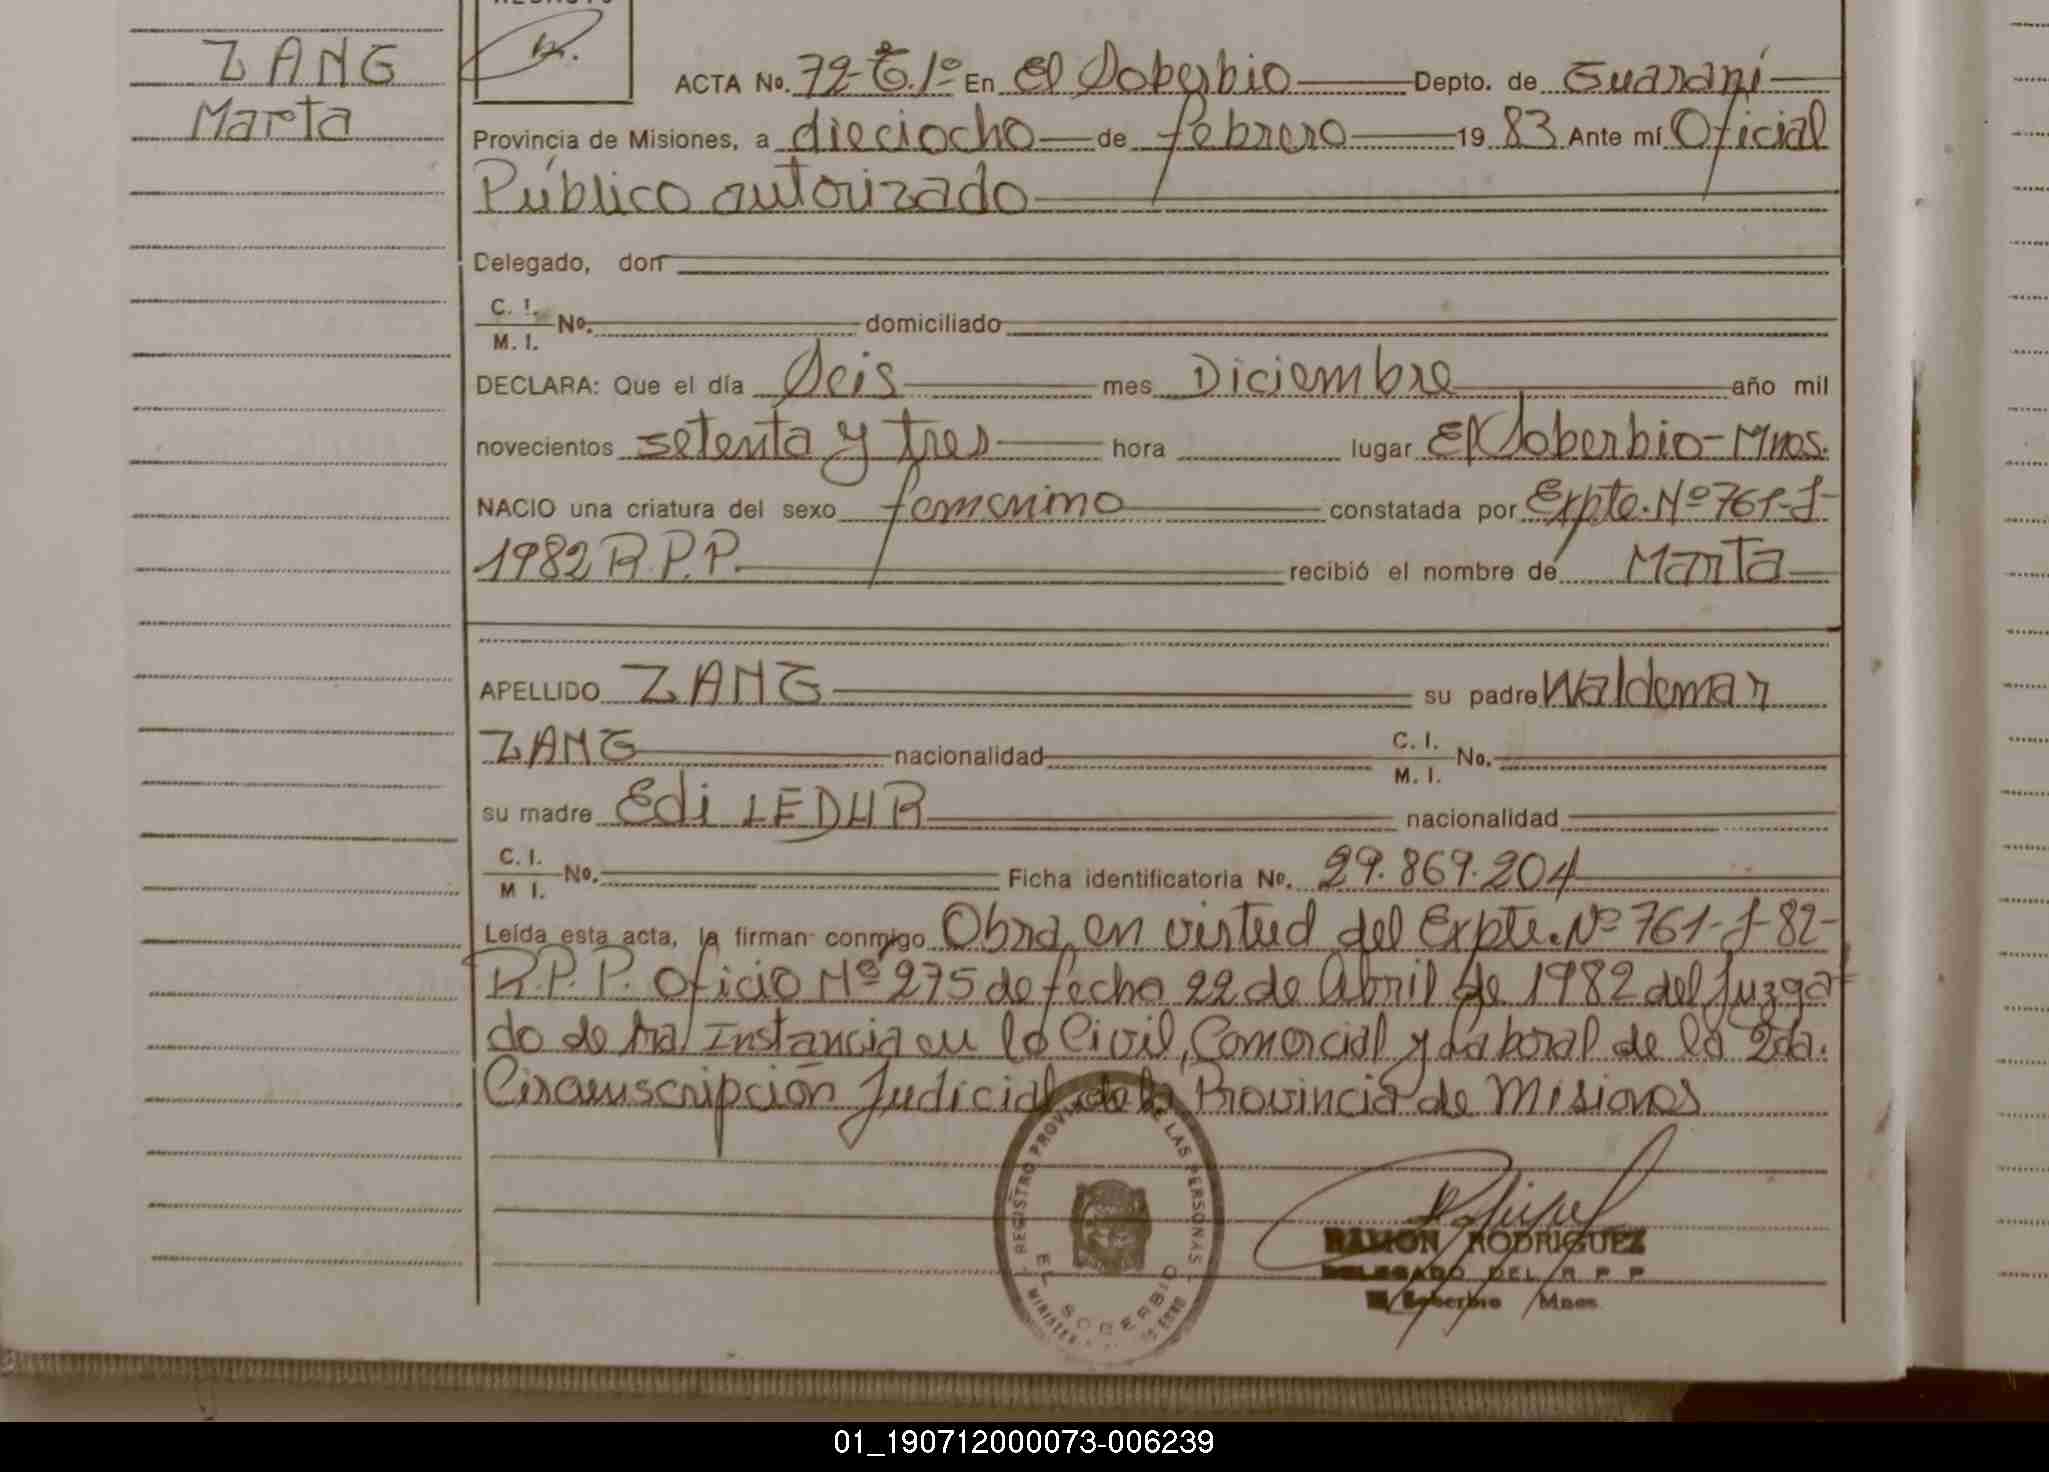 ZANG
Marta
ACTA No. 72-T.1º En El Soberbio Depto. de Guaraní
Provincia de Misiones, a dieciocho de febrero 19 83 Ante mí Oficial
Público autorizado
Delegado, don
C. I.
M. I. No. domiciliado
DECLARA: Que el día Seis mes Diciembre año mil
novecientos setenta y tres hora lugar El Soberbio-Mnes.
NACIO una criatura del sexo femenino constatada por Expte. Nº 761-J-
1982 R.P.P. recibió el nombre de Marta
APELLIDO ZANG su padre Waldemar
ZANG nacionalidad C. I.
M. I. No.
su madre Edi LEDUR nacionalidad
C. I.
M I. No. Ficha identificatoria No. 29.869.204
Leída esta acta, la firman conmigo Obra en virtud del Expte. Nº 761-J-82-
R.P.P. Oficio Nº 275 de fecha 22 de Abril de 1982 del Juzga-
do de 1ra Instancia en lo Civil, Comercial y Laboral de la 2da.
Circunscripción Judicial de la Provincia de Misiones
REGISTRO PROVINCIAL DE LAS PERSONAS
EL SOBERBIO
RAMON RODRIGUEZ
DELEGADO DEL R P P
El Soberbio Mnes.
01_190712000073-006239